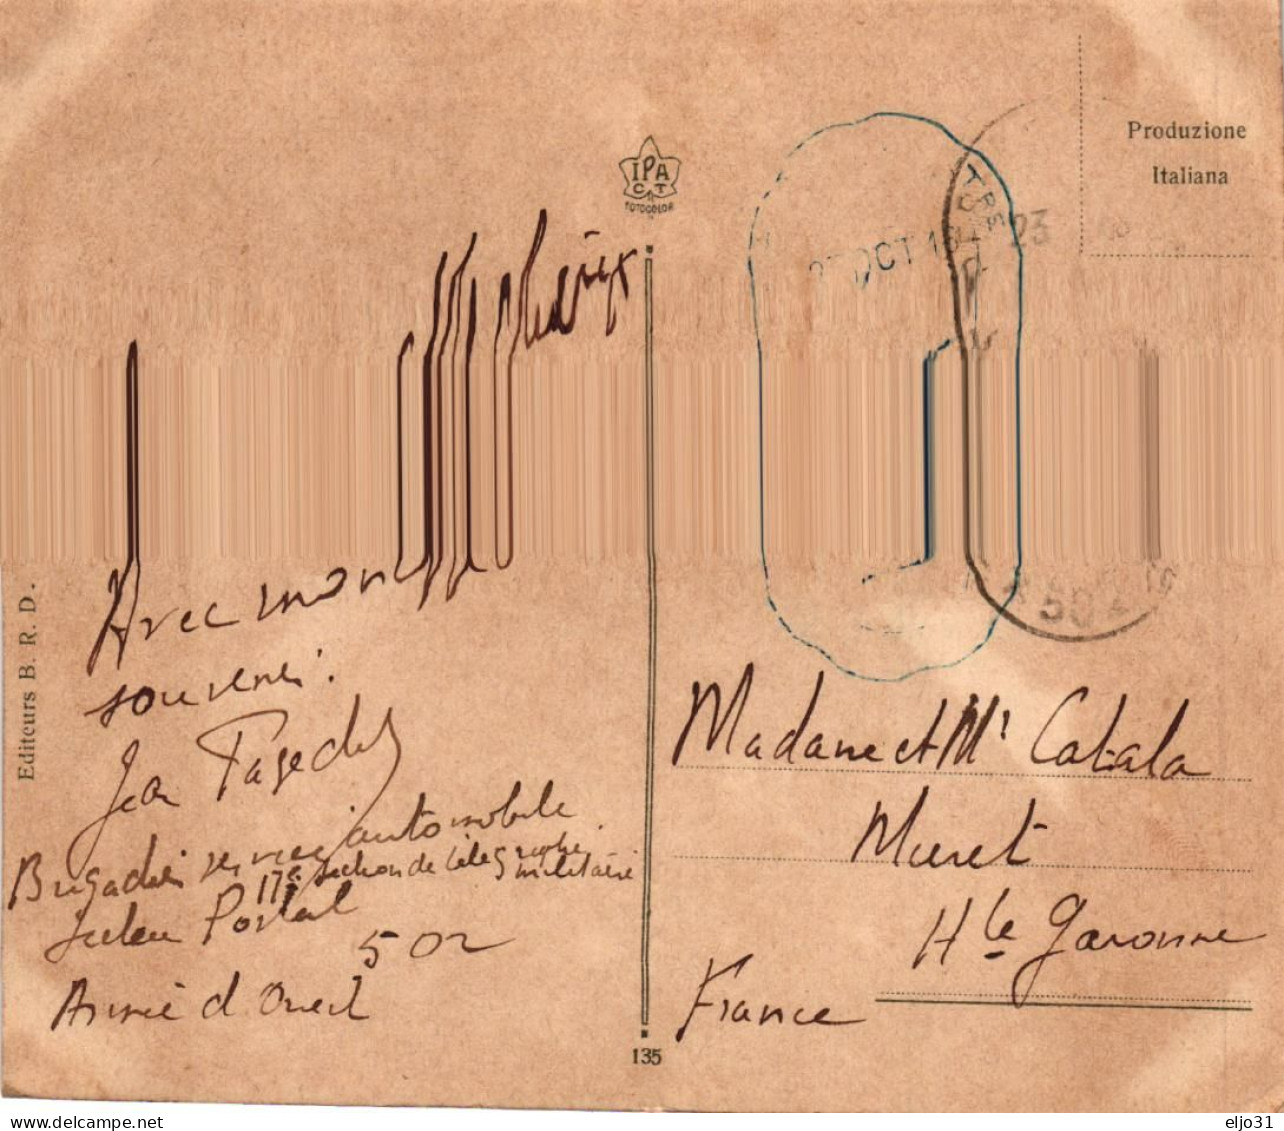 Produzione
Italiana
IPA
CT
FOTOCOLOR
TRE
OCT 1
23
504
Avec mon
souvenir.
Jean
Brigadier service automobile
17e section de télégraphie
militaire
Secteur Postal
502
Armée d'Orient
Editeurs B. R. D.
135
Madame et Mr Catala
Muret
Hte Garonne
France
www.delcampe.net
eljo31